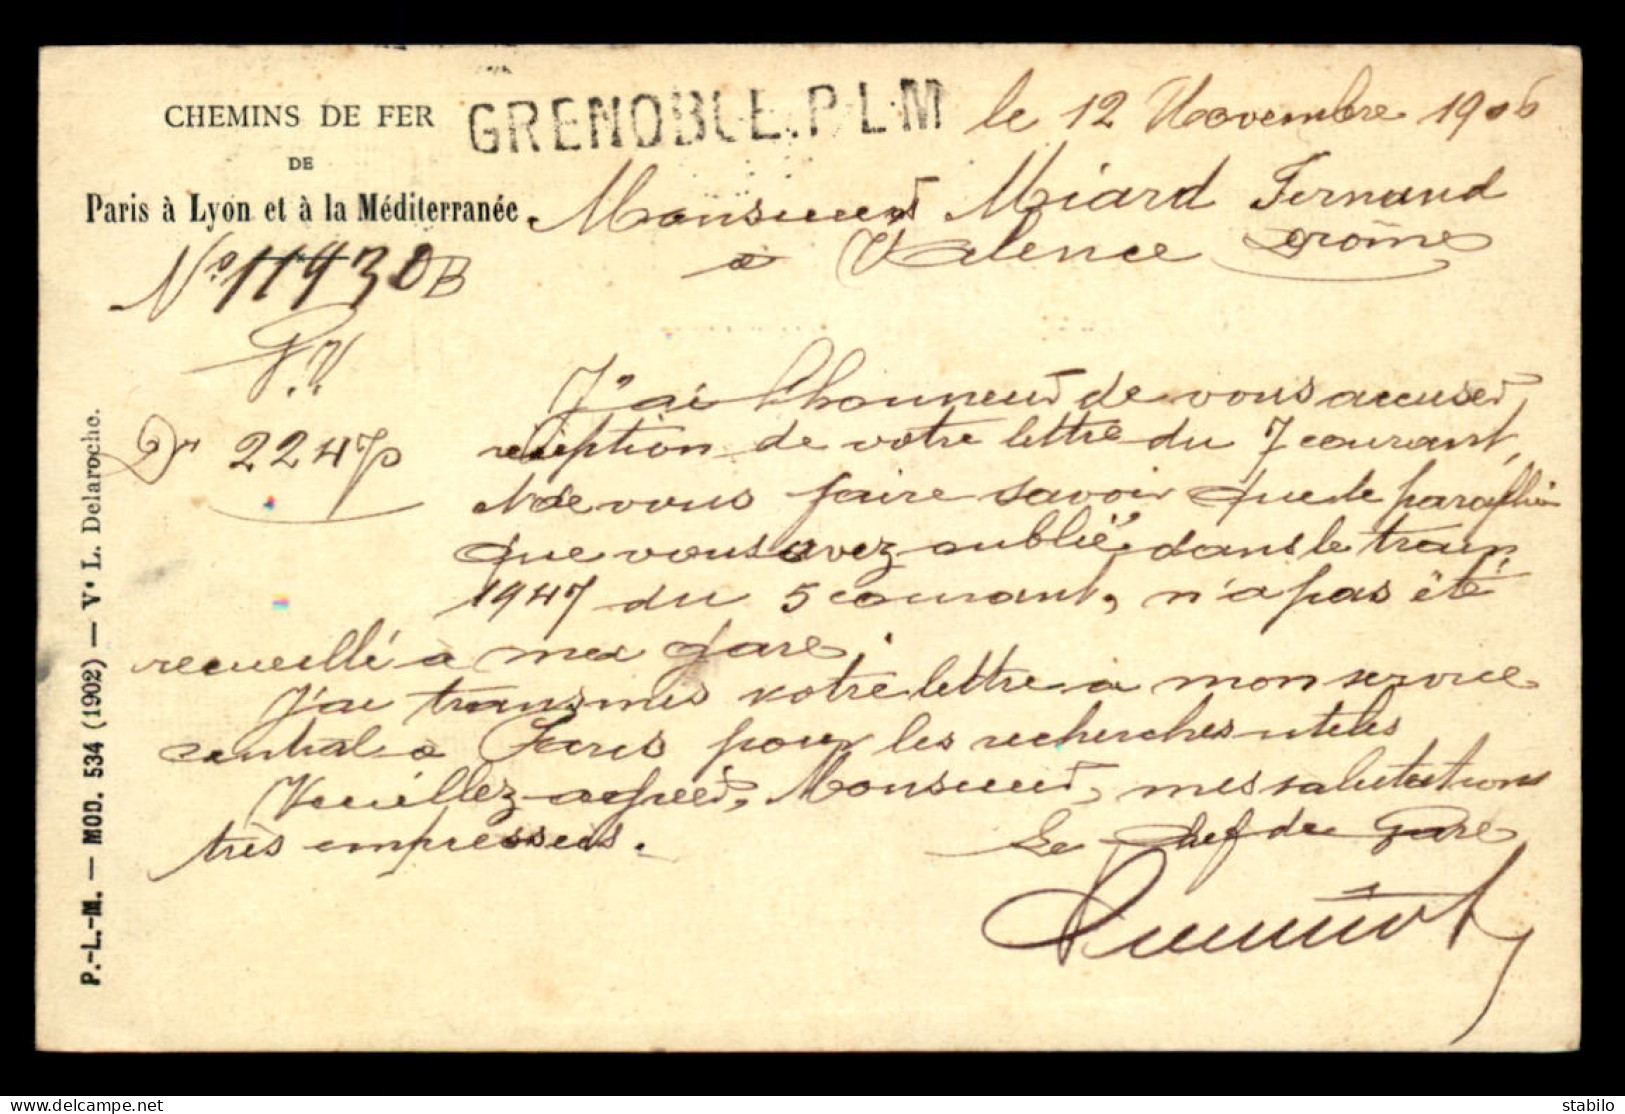 CHEMINS DE FER
DE
Paris à Lyon et à la Méditerranée
GRENOBLE.P.L.M
le 12 Novembre 1906
Monsieur Miard Fernand
à Valence Drôme
N° 11930 B
P.V.
Dr 2247
J'ai l'honneur de vous accuser
réception de votre lettre du 7 courant,
& de vous faire savoir que le parapluie
que vous avez oublié dans le train
1947 du 5 courant, n'a pas été
recueilli à ma gare.
J'ai transmis votre lettre à mon service
central à Paris pour les recherches utiles
Veuillez agréer, Monsieur, mes salutations
très empressées.
Le Chef de Gare
P.-L.-M. — MOD. 534 (1902) — Vᵉ L. Delaroche.
stabilo